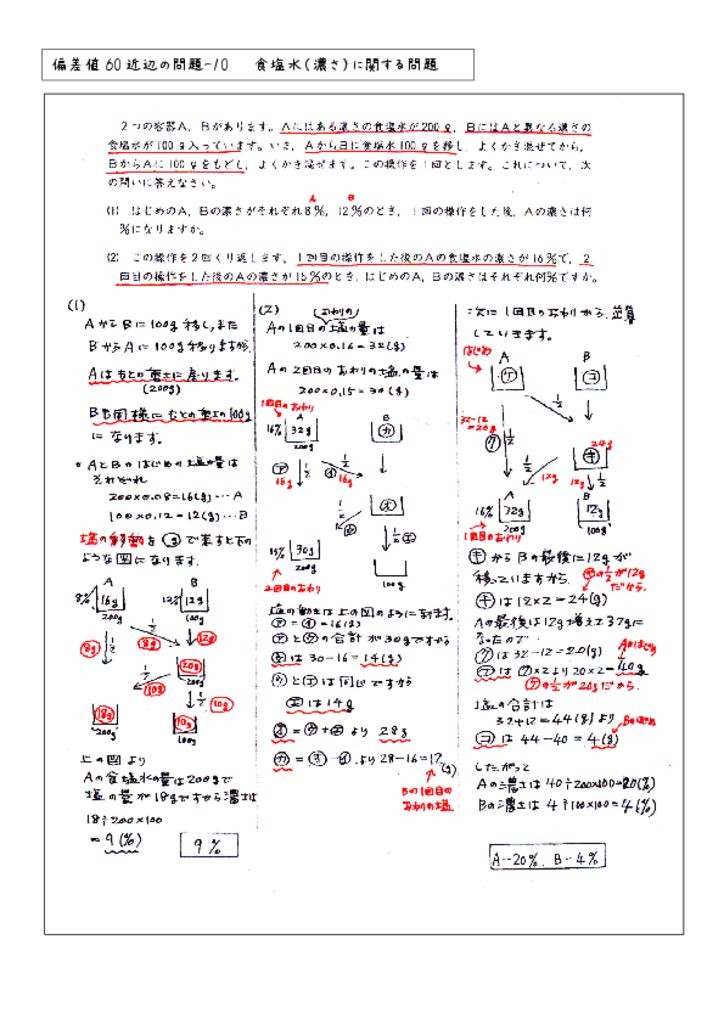 偏差値60近辺の問題-10 食塩水(濃さ)に関する問題
2つの容器A, Bがあります。Aにはある濃さの食塩水が200g, BにはAと異なる濃さの
食塩水が100g入っています。いま, AからBに食塩水100gを移し, よくかき混ぜてから,
BからAに100gをもどし, よくかき混ぜます。この操作を1回とします。これについて, 次
の問いに答えなさい。
A B
(1) はじめのA, Bの濃さがそれぞれ8%, 12%のとき, 1回の操作をした後, Aの濃さは何
%になりますか。
(2) この操作を2回くり返します。1回目の操作をした後のAの食塩水の濃さが16%で, 2
回目の操作をした後のAの濃さが15%のとき, はじめのA, Bの濃さはそれぞれ何%ですか。
(1)
AからBに100g移し,また
BからAに100g移りますから
Aはもとの重さに戻ります。
(200g)
Bも同様にもとの重さの100g
になります。
*AとBのはじめの塩の量は
それぞれ
200×0.08=16(g)…A
100×0.12=12(g)…B
塩の移動を○gで表すと下の
ような図になります。
A B
8% 16g 12% 12g
200g 100g
1/2
8g 8g 12g
1/2 20g
200g
10g 1/2 10g
18g 10g
200g 100g
上の図より
Aの食塩水の量は200gで
塩の量が18gですから濃さは
18÷200×100
=9(%)
9%
(2) おわりの
Aの1回目の塩の量は
200×0.16=32(g)
Aの2回目のおわりの塩の量は
200×0.15=30(g)
1回目のおわり
A B
16% 32g カ
200g
ア 1/2 イ 1/2
16g 16g
オ
ウ 1/2 エ
15% 30g
200g 100g
2回目のおわり
塩の動きは上の図のようになります。
ア=イ=16(g)
アとウの合計が30gですから
ウは30-16=14(g)
ウとエは同じですから
エは14g
オ=ウ+エより 28g
カ=オ-イより 28-16=12(g)
Bの1回目の
おわりの塩
次に1回目のおわりから, 逆算
していきます。
はじめ
A B
ケ コ
1/2
32-12
=20g
ク 1/2 24g
キ
1/2 12g 12g 1/2
A B
16% 32g 12g
200g 100g
1回目のおわり
キからBの最後に12gが
残っていますから, キの1/2が12g
だから.
キは12×2=24(g)
Aの最後は12g増えて32gに
なったので
クは32-12=20(g) Aのはじめ
ケはク×2より20×2=40g
ケの1/2が20gだから.
塩の合計は
32+12=44(g)より Bのはじめ
コは44-40=4(g)
したがって
Aの濃さは40÷200×100=20(%)
Bの濃さは4÷100×100=4(%)
A…20%, B…4%